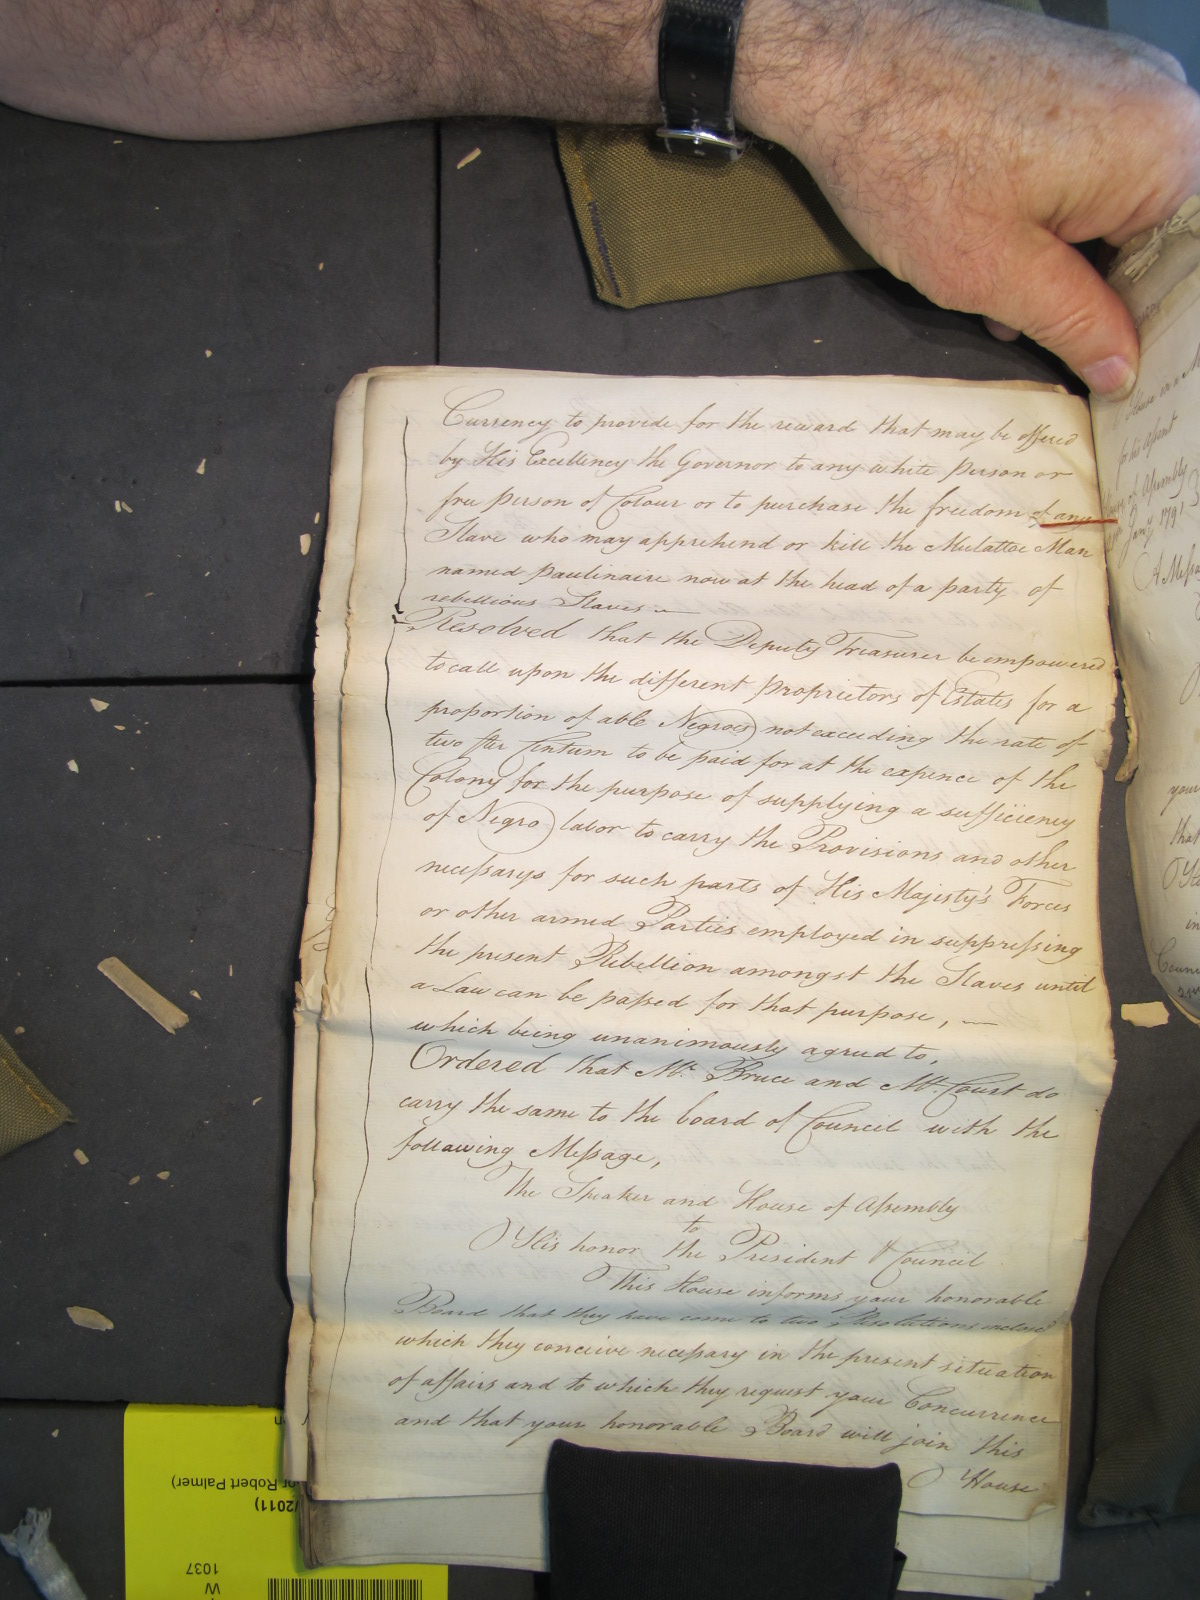 Currency to provide for the reward that may be offered
by His Excellency the Governor to any white Person or
free person of Colour or to purchase the freedom of any
Slave who may apprehend or kill the Mulattoe Man
named Paulinaire now at the head of a party of
rebellious Slaves —
Resolved that the Deputy Treasurer be empowered
to call upon the different Proprietors of Estates for a
proportion of able Negroes not exceeding the rate of
two Per Centum to be paid for at the expence of the
Colony for the purpose of supplying a sufficiency
of Negro labor to carry the Provisions and other
necessarys for such parts of His Majesty's Forces
or other armed Parties employed in suppressing
the present Rebellion amongst the Slaves until
a Law can be passed for that purpose, —
which being unanimously agreed to,
Ordered that Mr. Bruce and Mr. Court do
carry the same to the board of Council with the
following Message,
The Speaker and House of Assembly
to
His honor the President & Council
This House informs your honorable
Board that they have come to two Resolutions
which they conceive necessary in the present situation
of affairs and to which they request your Concurrence
and that your honorable Board will join this
House
House in a
for his assent
of Assembly
Jany. 1791
A Messa
your
that
in
Counc
or Robert Palmer)
/2011)
1037
W